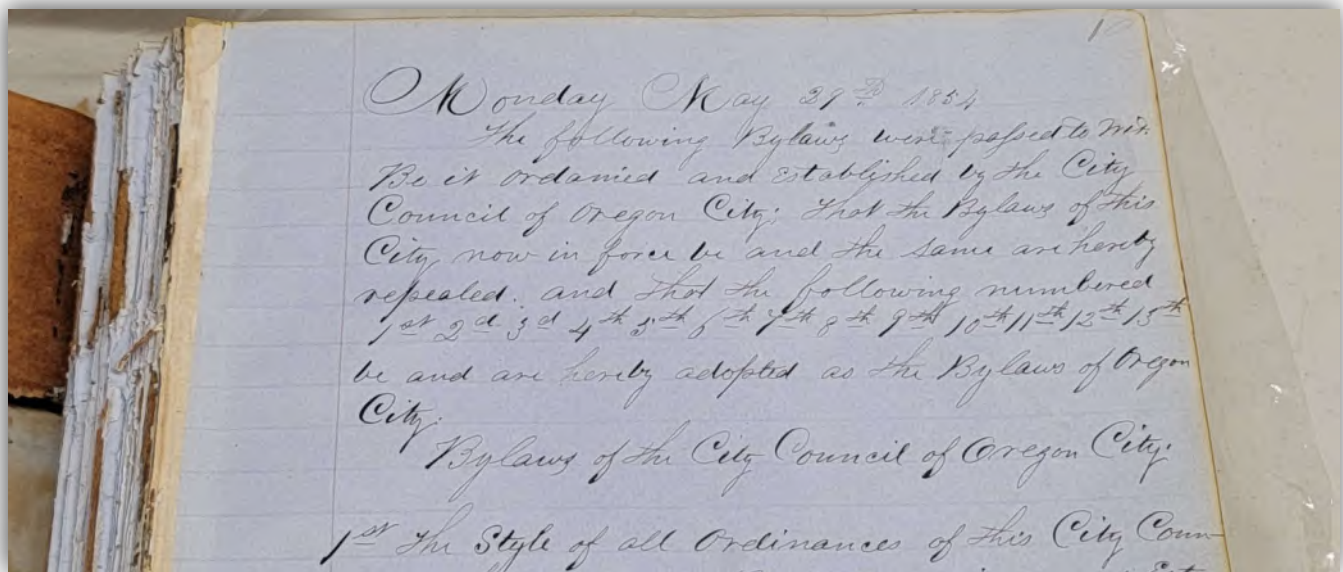 Monday May 29th 1854
The following Bylaws were passed to wit:
Be it ordained and Established by the City
Council of Oregon City; that the Bylaws of this
City now in force be and the same are hereby
repealed. and that the following numbered
1st 2d 3d 4th 5th 6th 7th 8th 9th 10th 11th 12th 13th
be and are hereby adopted as the Bylaws of Oregon
City.
Bylaws of the City Council of Oregon City.
1st The Style of all Ordinances of this City Coun-